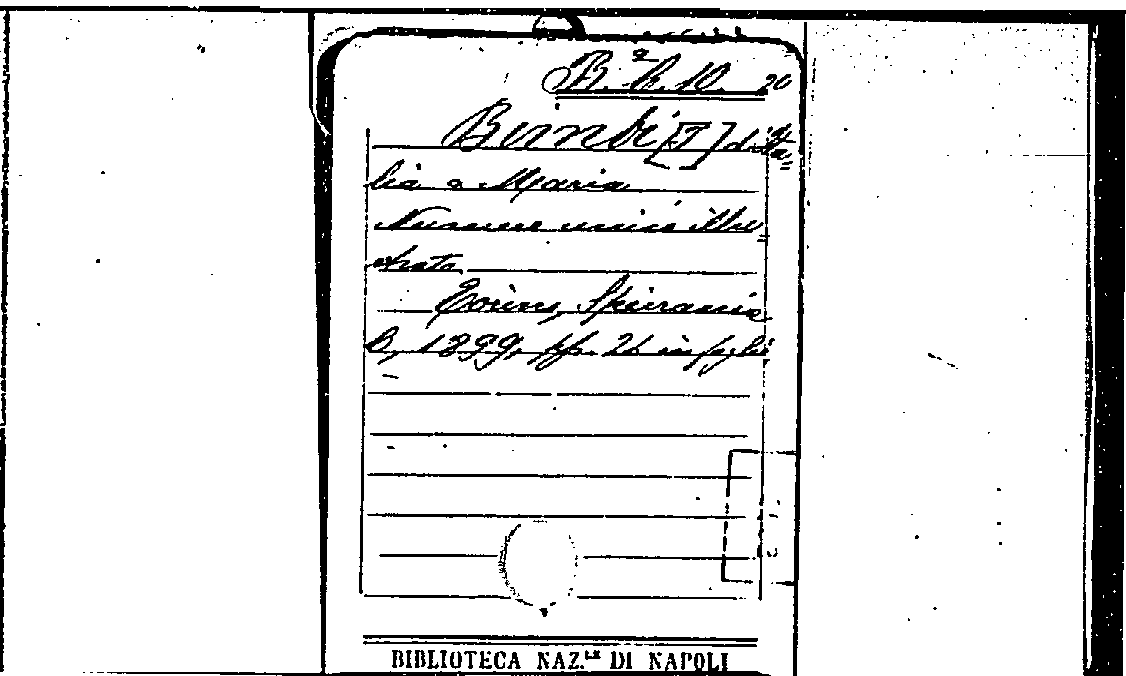 B.ª b. 10. 20
Bimbi [I] d'Ita=
lia a Maria
Numero unico illu=
strato
Torino, Speirani
B, 1899, pp. 26 in foglio
BIBLIOTECA NAZ.LE DI NAPOLI